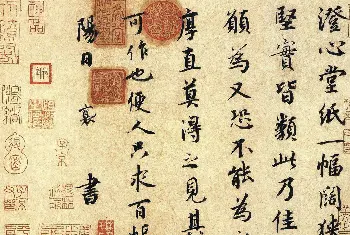 澄心堂紙一幅闊狹
堅實皆類此乃佳
願為又恐不能為
厚直莫得之見其
可作也便人只求百幅
陽日襄書